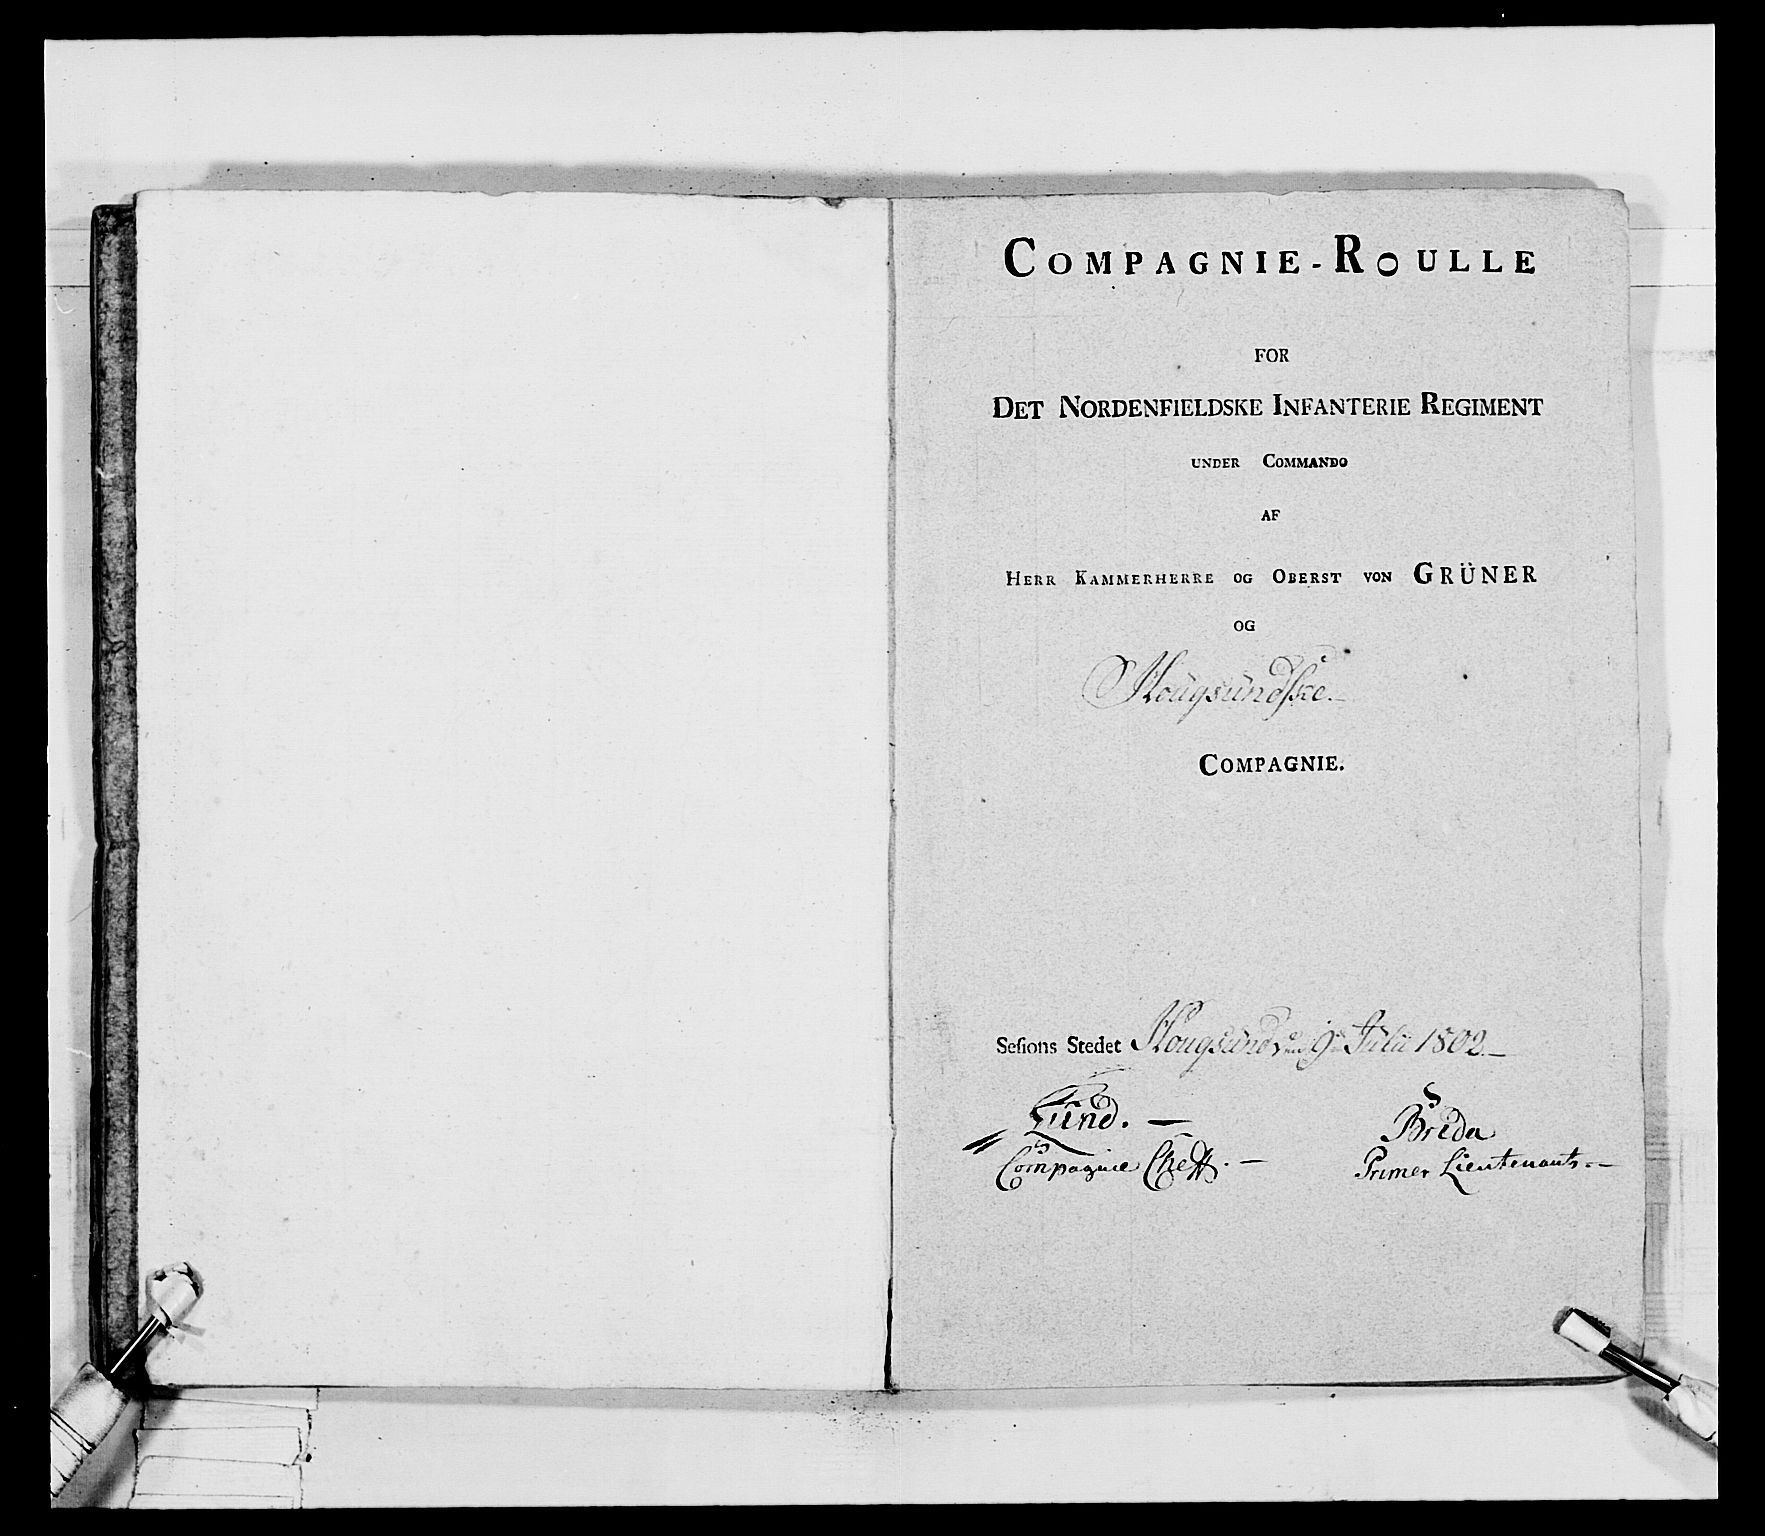 COMPAGNIE-ROULLE
FOR
DET NORDENFIELDSKE INFANTERIE REGIMENT
UNDER COMMANDO
AF
HERR KAMMERHERRE OG OBERST VON GRÜNER
OG
Hougsundske.
COMPAGNIE.
Sesions Stedet Hougsund den 9de Julii 1802
Lund. Breda
Compagnie Cheff. Primer Lieutenant